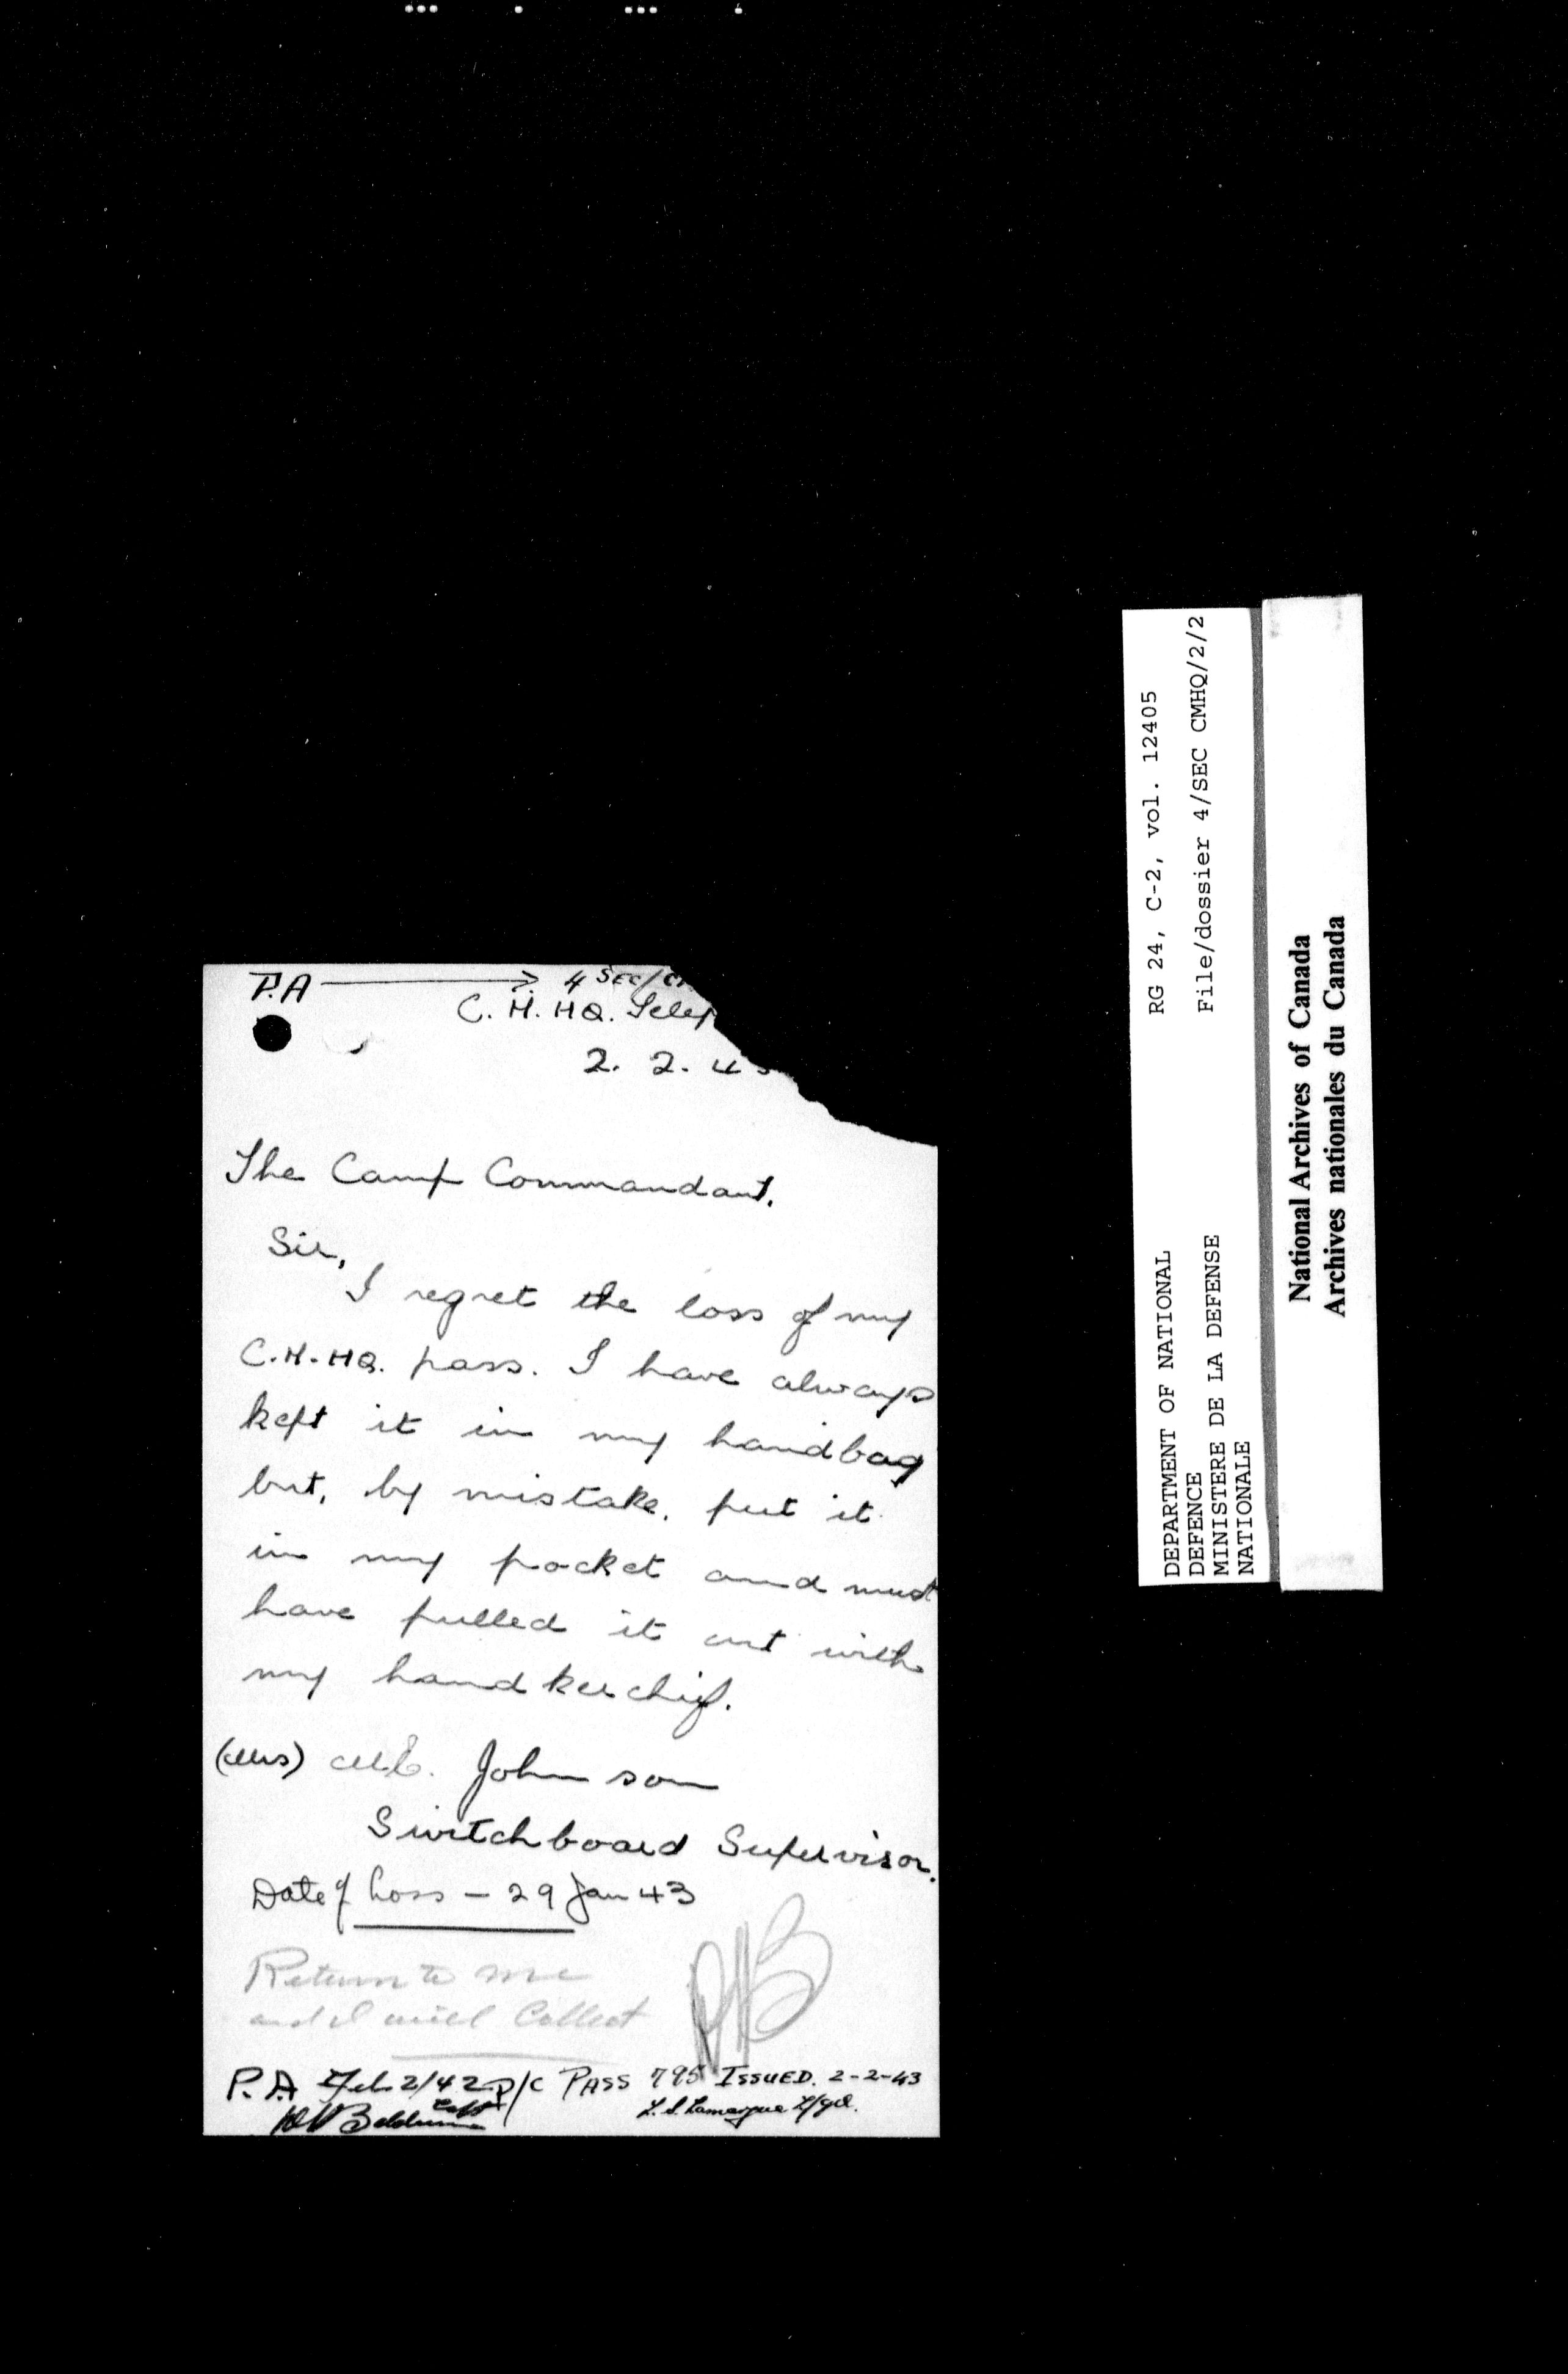 P.A → 4 SEC/CM
C.M.HQ. Telep
2. 2. 43
The Camp Commandant.
Sir,
I regret the loss of my
C.M.HQ. pass. I have always
kept it in my handbag
but, by mistake, put it
in my pocket and must
have pulled it out with
my handkerchief.
(Mrs) M.E. Johnson
Switchboard Supervisor.
Date of Loss — 29 Jan 43
Return to me
and I will Collect
P.A Feb 2/42 P/C PASS 795 ISSUED. 2-2-43
Baldwin Capt
L.S. Lamarque
RG 24, C-2, vol. 12405
File/dossier 4/SEC CMHQ/2/2
DEPARTMENT OF NATIONAL
DEFENCE
MINISTERE DE LA DEFENSE
NATIONALE
National Archives of Canada
Archives nationales du Canada